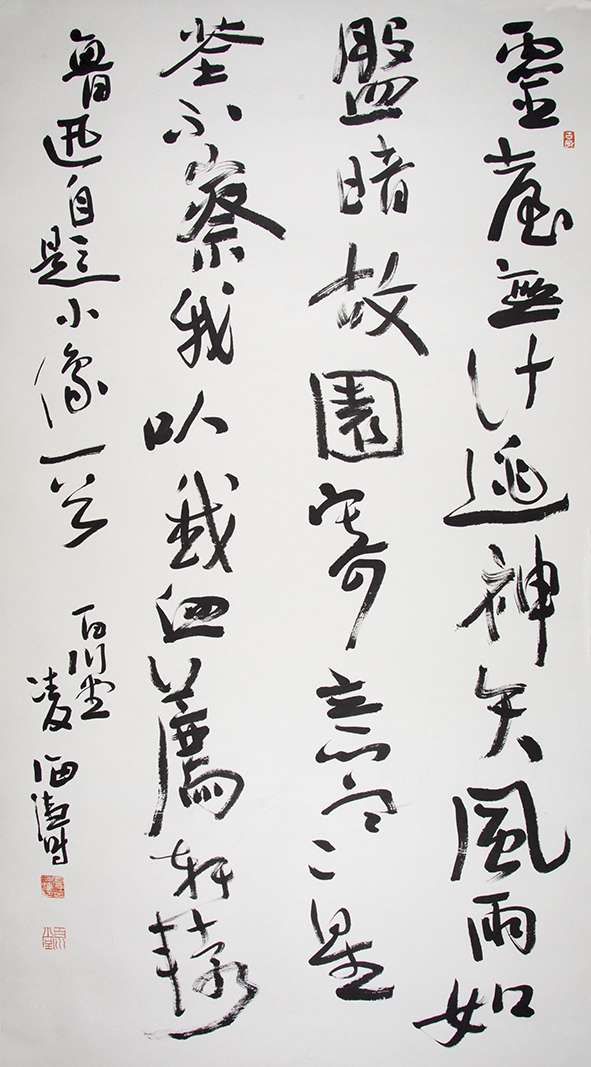 靈臺無計逃神矢風雨如
盤暗故園寄意寒星
荃不察我以我血薦軒轅
魯迅自題小像一首 百川堂 凌海濤